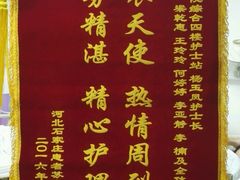 院综合四楼护士站 杨玉凤护士长
梁乾惠 王玲玲 何婷婷 李亚静 李楠及全
衣天使 热情周到
精湛 精心护理
河北石家庄患者
二〇一六年